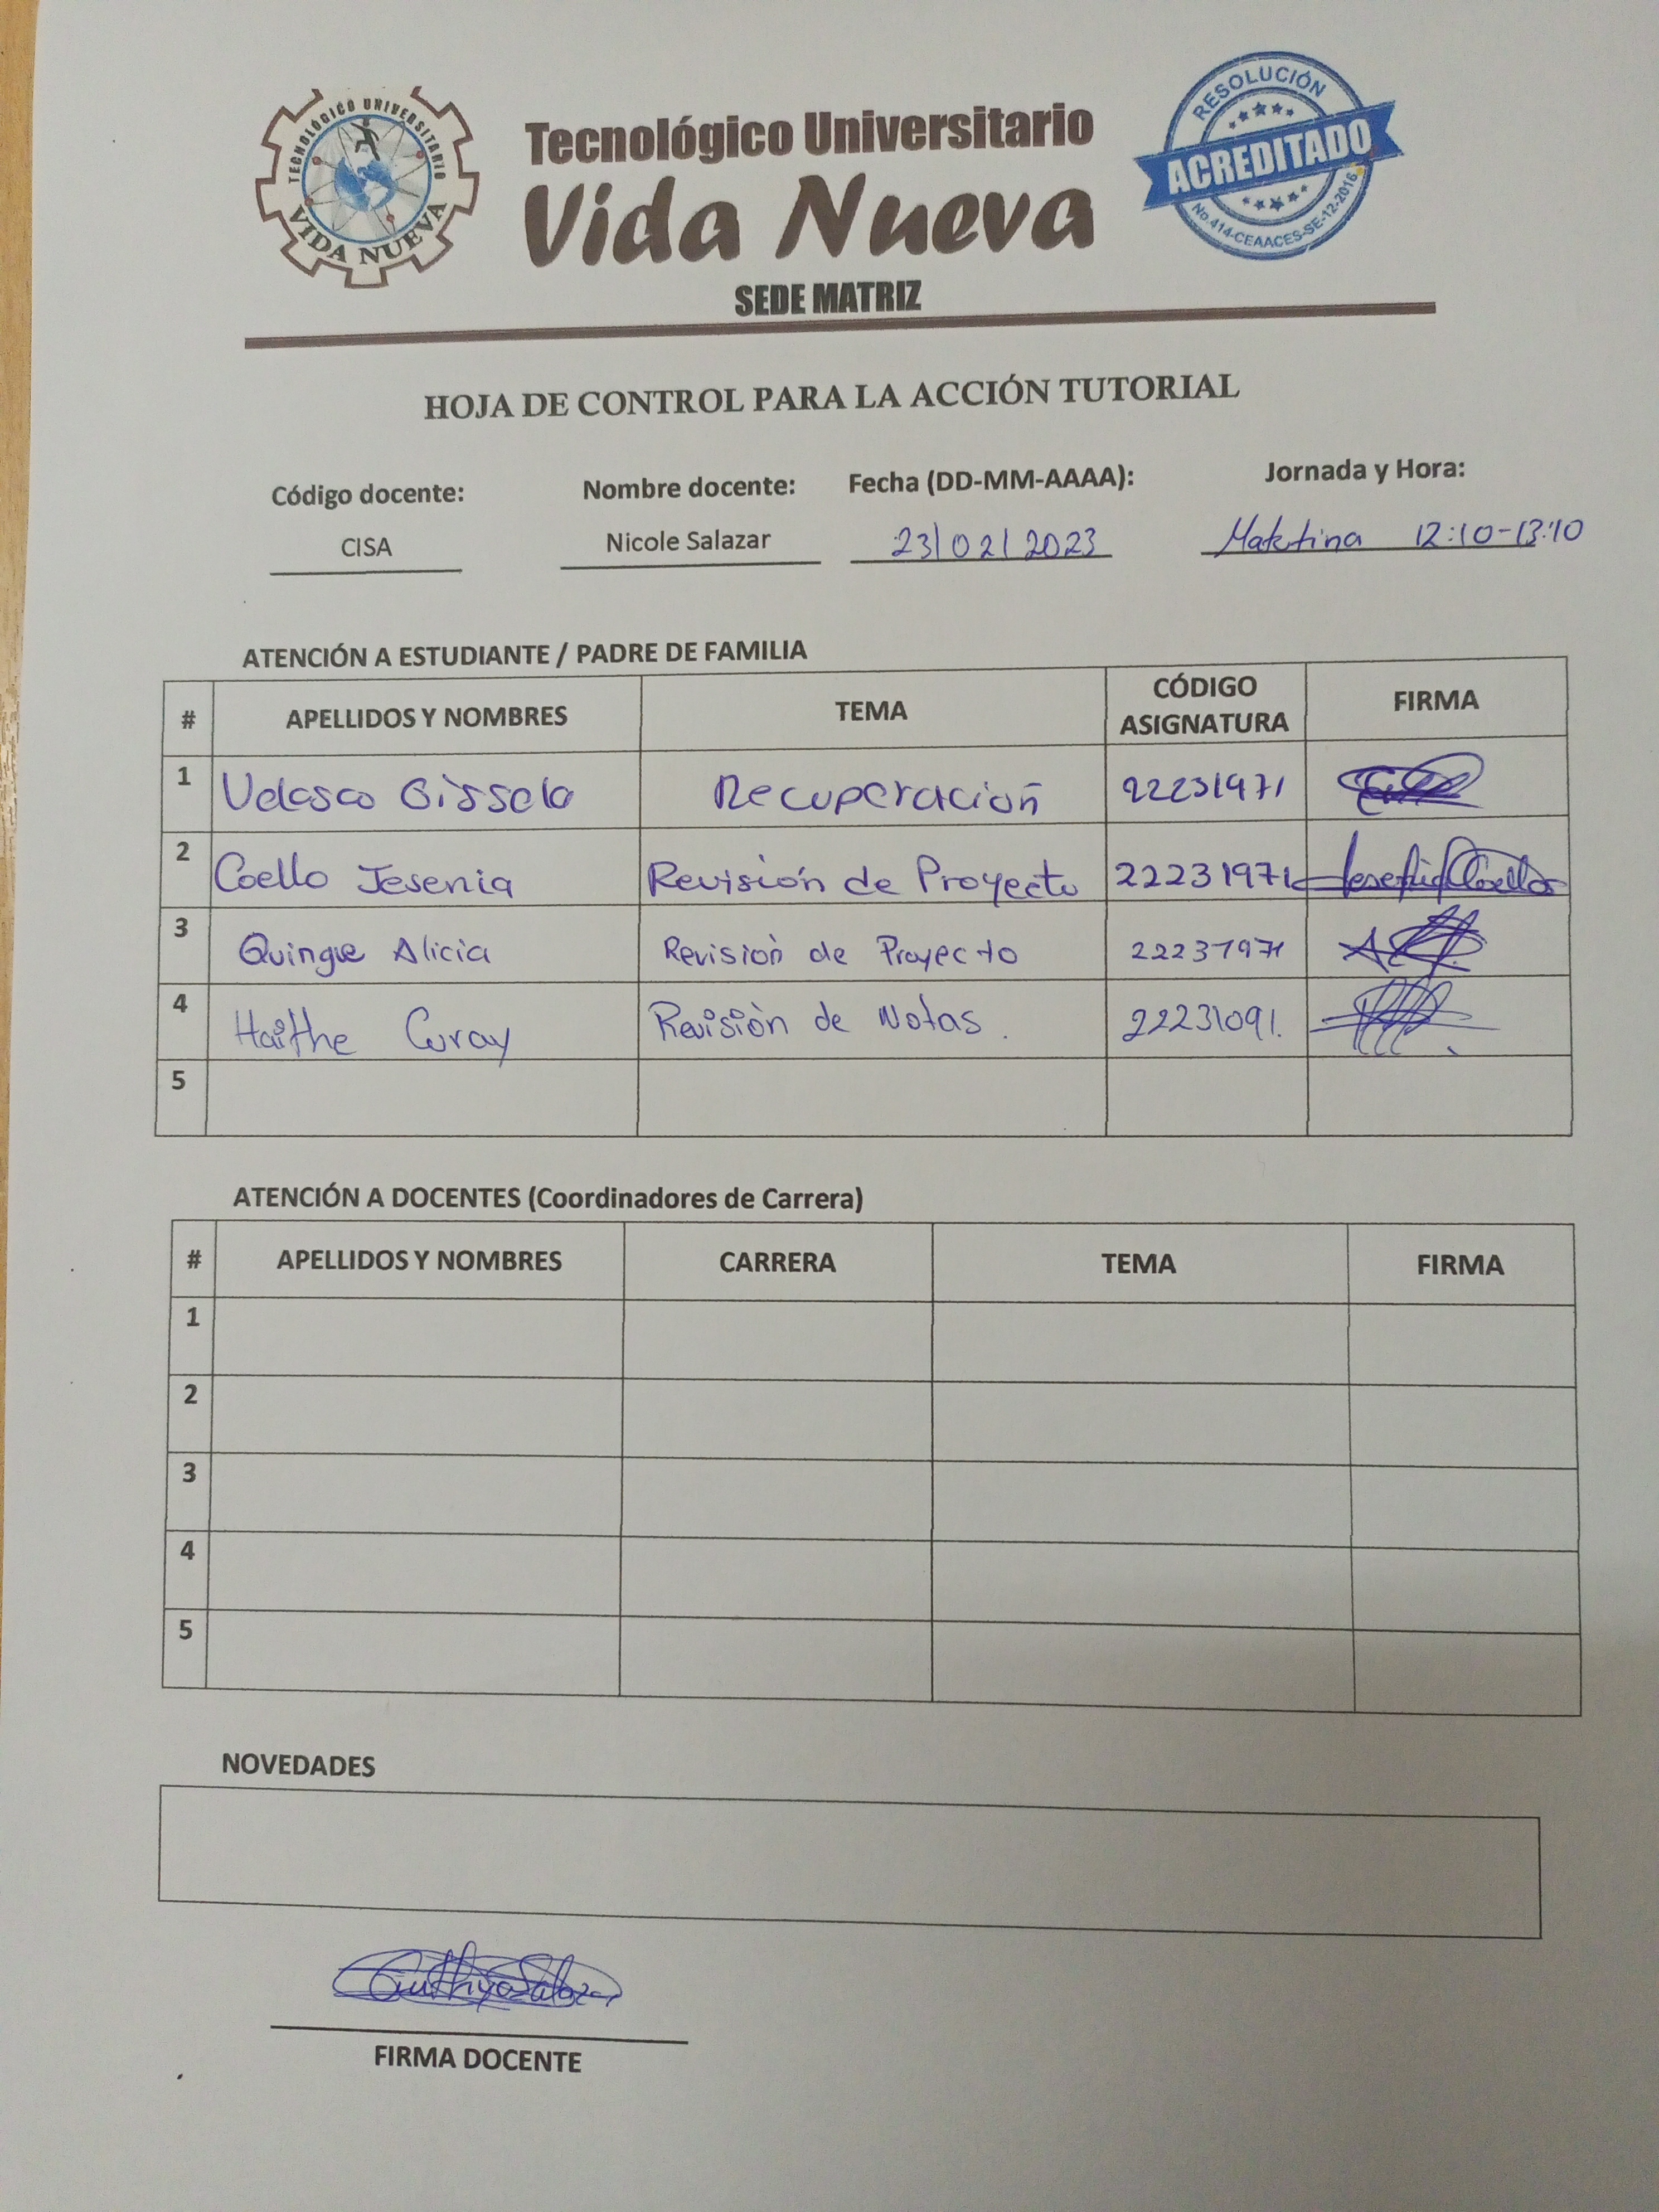 TECNOLÓGICO UNIVERSITARIO
VIDA NUEVA
Tecnológico Universitario
Vida Nueva
SEDE MATRIZ
RESOLUCIÓN
ACREDITADO
No.414-CEAACES-SE-12-2016
HOJA DE CONTROL PARA LA ACCIÓN TUTORIAL
Código docente: Nombre docente: Fecha (DD-MM-AAAA): Jornada y Hora:
CISA Nicole Salazar 23/02/2023 Matutina 12:10-13:10
ATENCIÓN A ESTUDIANTE / PADRE DE FAMILIA
# APELLIDOS Y NOMBRES TEMA CÓDIGO ASIGNATURA FIRMA
1 Velasco Gissela Recuperación 22231971
2 Coello Jesenia Revisión de Proyecto 22231971 Jesenia Coello
3 Quingue Alicia Revisión de Proyecto 22231971
4 Haithe Curay Revisión de Notas. 22231091.
5
ATENCIÓN A DOCENTES (Coordinadores de Carrera)
# APELLIDOS Y NOMBRES CARRERA TEMA FIRMA
1
2
3
4
5
NOVEDADES
FIRMA DOCENTE